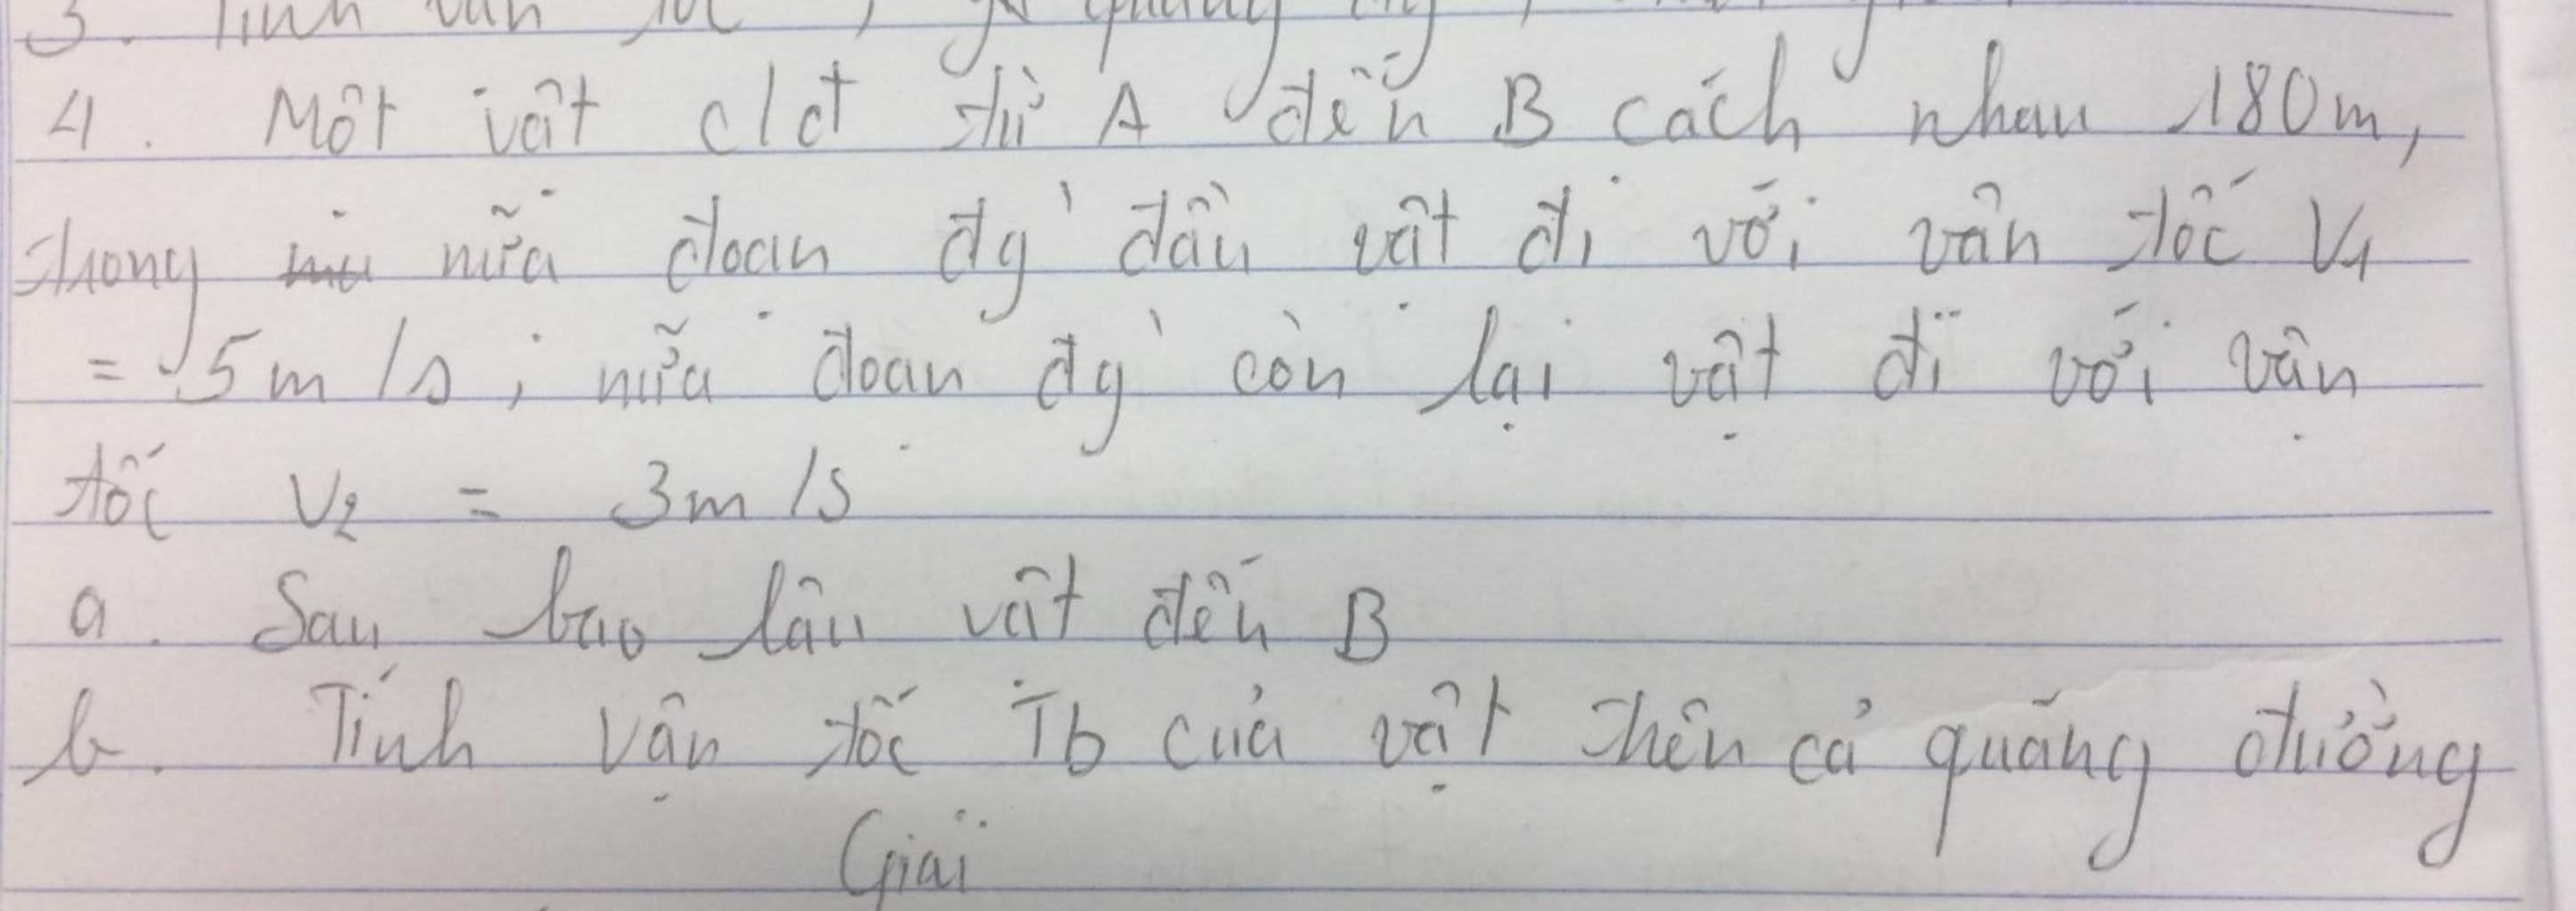 3. Tính vận tốc, quãng
4. Một vật cđ từ A đến B cách nhau 180m,
trong nữa đoạn đg` đầu vật đi với vận tốc V1
= 5m/s; nữa đoạn đg` còn lại vật đi với vận
tốc V2 = 3m/s
a. Sau bao lâu vật đến B
b. Tính vận tốc Tb của vật trên cả quãng đường
Giải